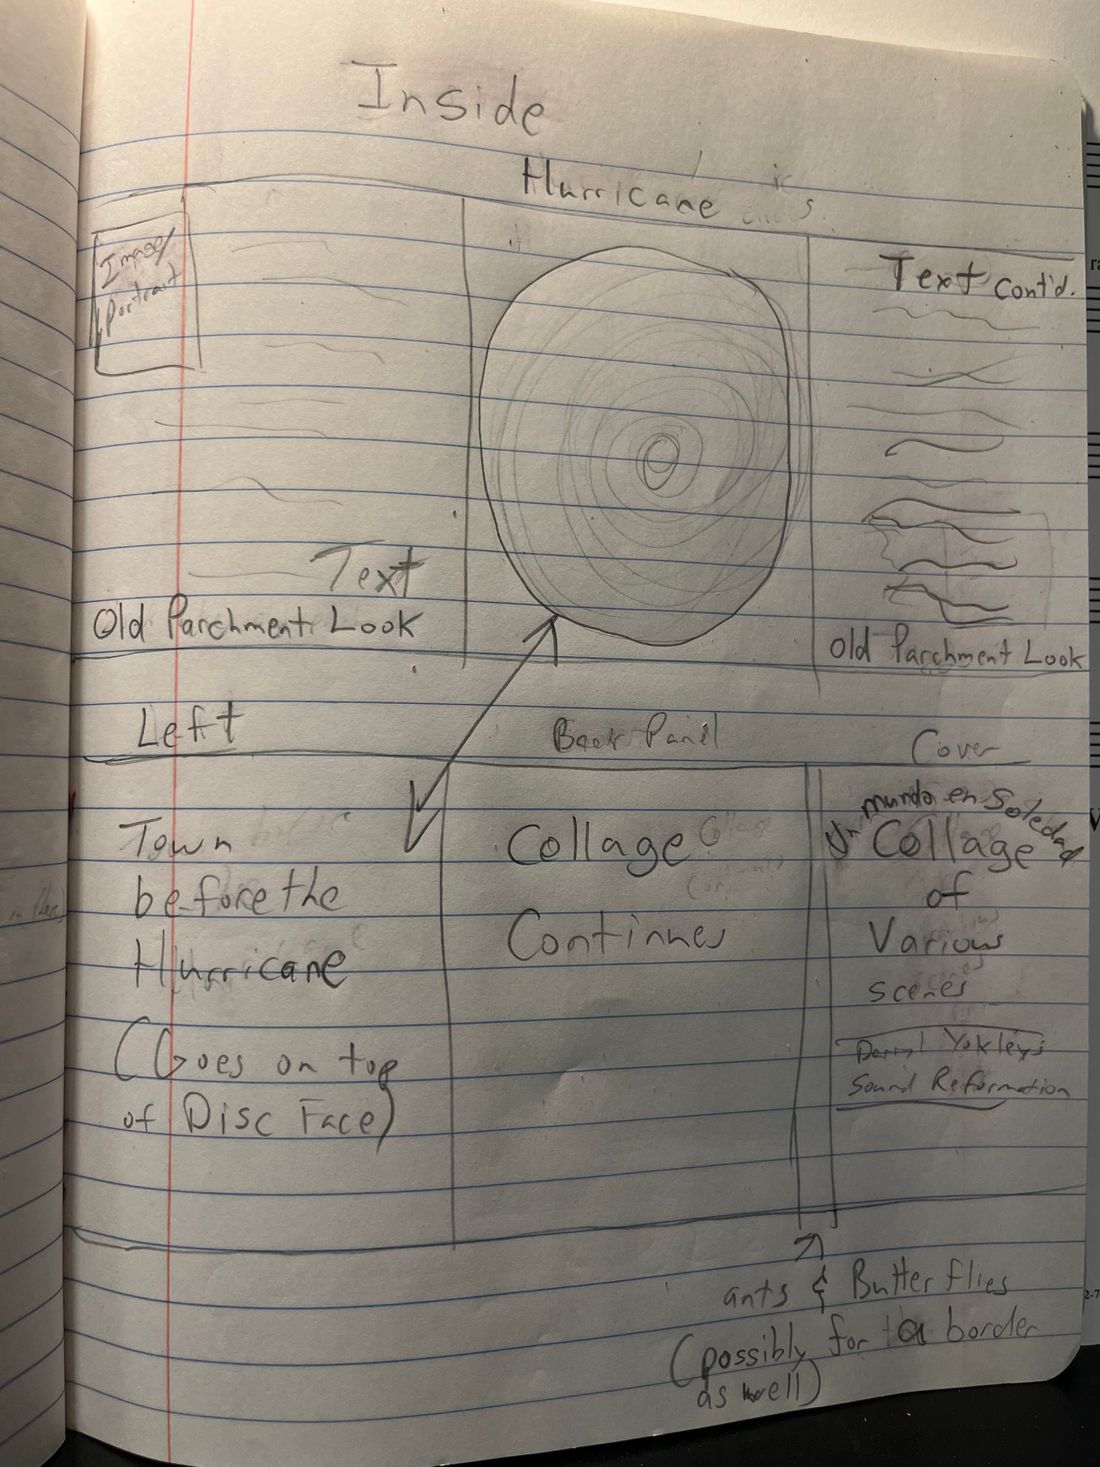 Inside
Hurricane
Image/
Portrait
Text cont'd.
Text
Old Parchment Look
Old Parchment Look
Left
Back Panel
Cover
Town
before the
Hurricane
(Goes on top
of Disc Face)
Collage
Continues
Un mundo en Soledad
Collage
of
Various
scenes
Darryl Yokley's
Sound Reformation
ants & Butterflies
(possibly for a border
as well)